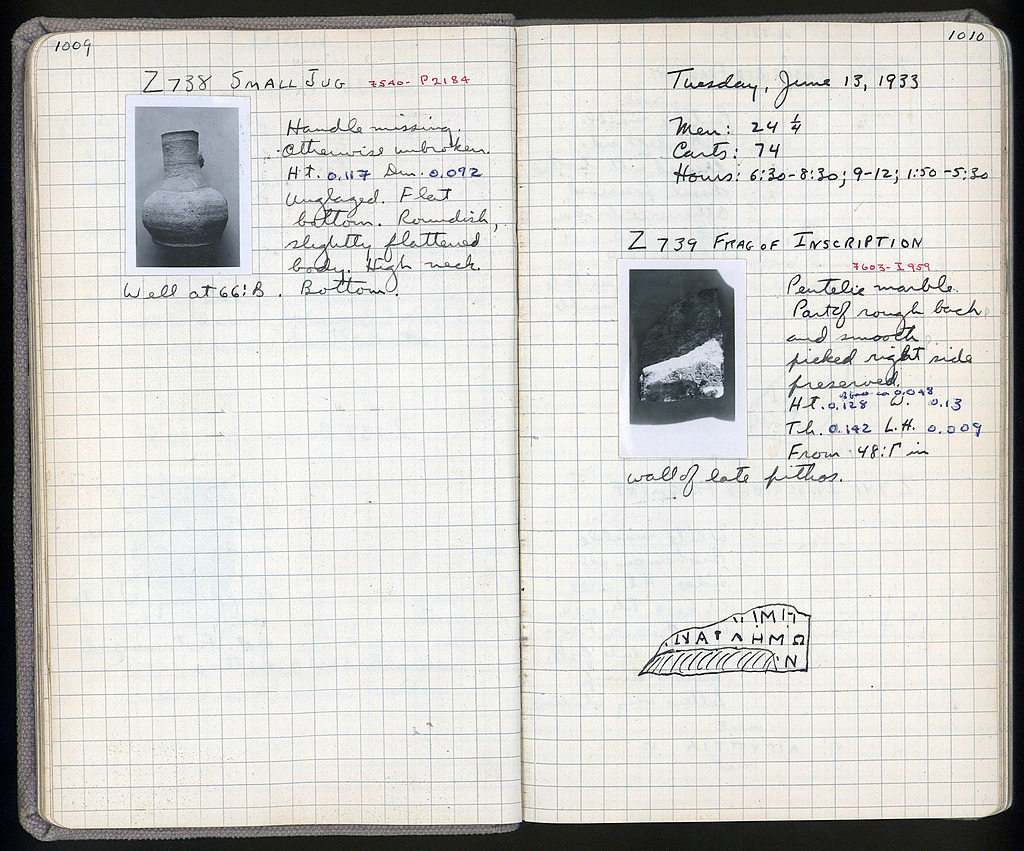 1009
Z 738 SMALL JUG 7540- P2184
Handle missing.
Otherwise unbroken.
Ht. 0.117 Dm. 0.092
Unglazed. Flat
bottom. Roundish,
slightly flattened
body. High neck.
Well at 66:B. Bottom.
1010
Tuesday, June 13, 1933
Men: 24 1/4
Carts: 74
Hours: 6:30-8:30; 9-12; 1:50-5:30
Z 739 FRAG OF INSCRIPTION
7603- I 959
Pentelic marble.
Part of rough back
and smooth
picked right side
preserved.
0.048
Ht. 0.128 W. 0.13
Th. 0.142 L.H. 0.009
From 48:Γ in
wall of late pithos.
ΙΜΙ
ΝΑ ΛΗΜΩ
Ν